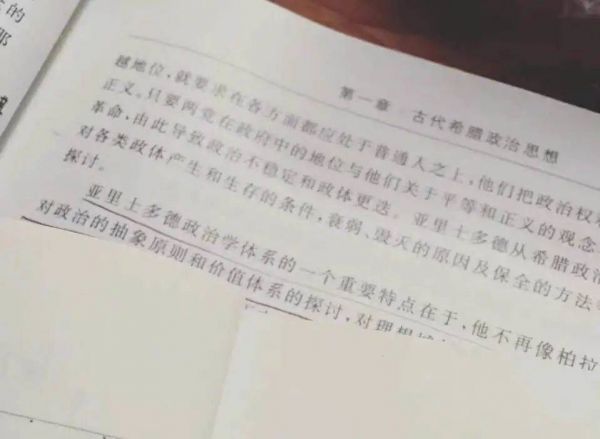 的
那
第一章 古代希腊政治思想
越地位,就要求在各方面都应处于普通人之上,他们把政治权利
正义。只要两党在政府中的地位与他们关于平等和正义的观念
革命,由此导致政治不稳定和政体更迭。亚里士多德从希腊政治
对各类政体产生和生存的条件,衰弱、毁灭的原因及保全的方法
探讨。
亚里士多德政治学体系的一个重要特点在于,他不再像柏拉
对政治的抽象原则和价值体系的探讨,对理想